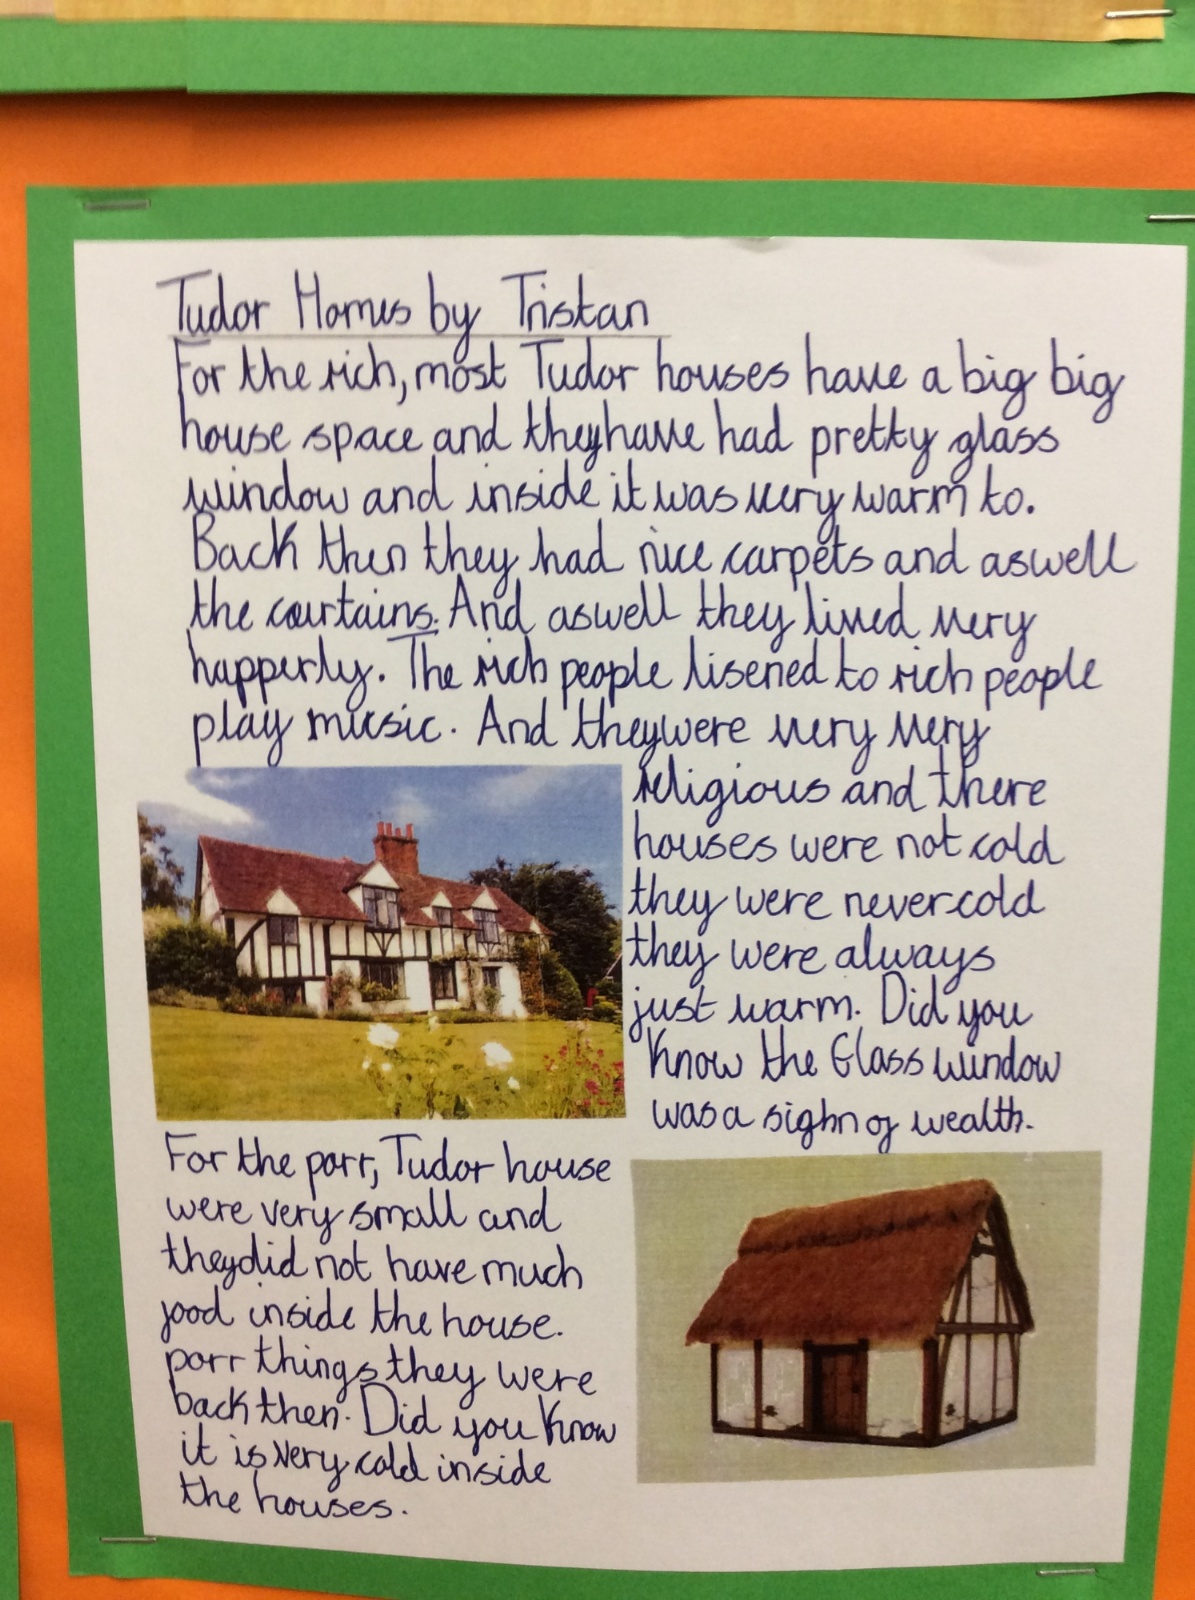 Tudor Homes by Tristan
For the rich, most Tudor houses have a big big
house space and they have had pretty glass
window and inside it was very warm to.
Back then they had nice carpets and aswell
the courtains. And aswell they lived very
happerly. The rich people lisened to rich people
play mucsic. And they were very very
religious and there
houses were not cold
they were never cold
they were always
just warm. Did you
Know the Glass window
was a sighn of wealth.
For the porr, Tudor house
were very small and
they did not have much
food inside the house.
porr things they were
back then. Did you Know
it is very cold inside
the houses.